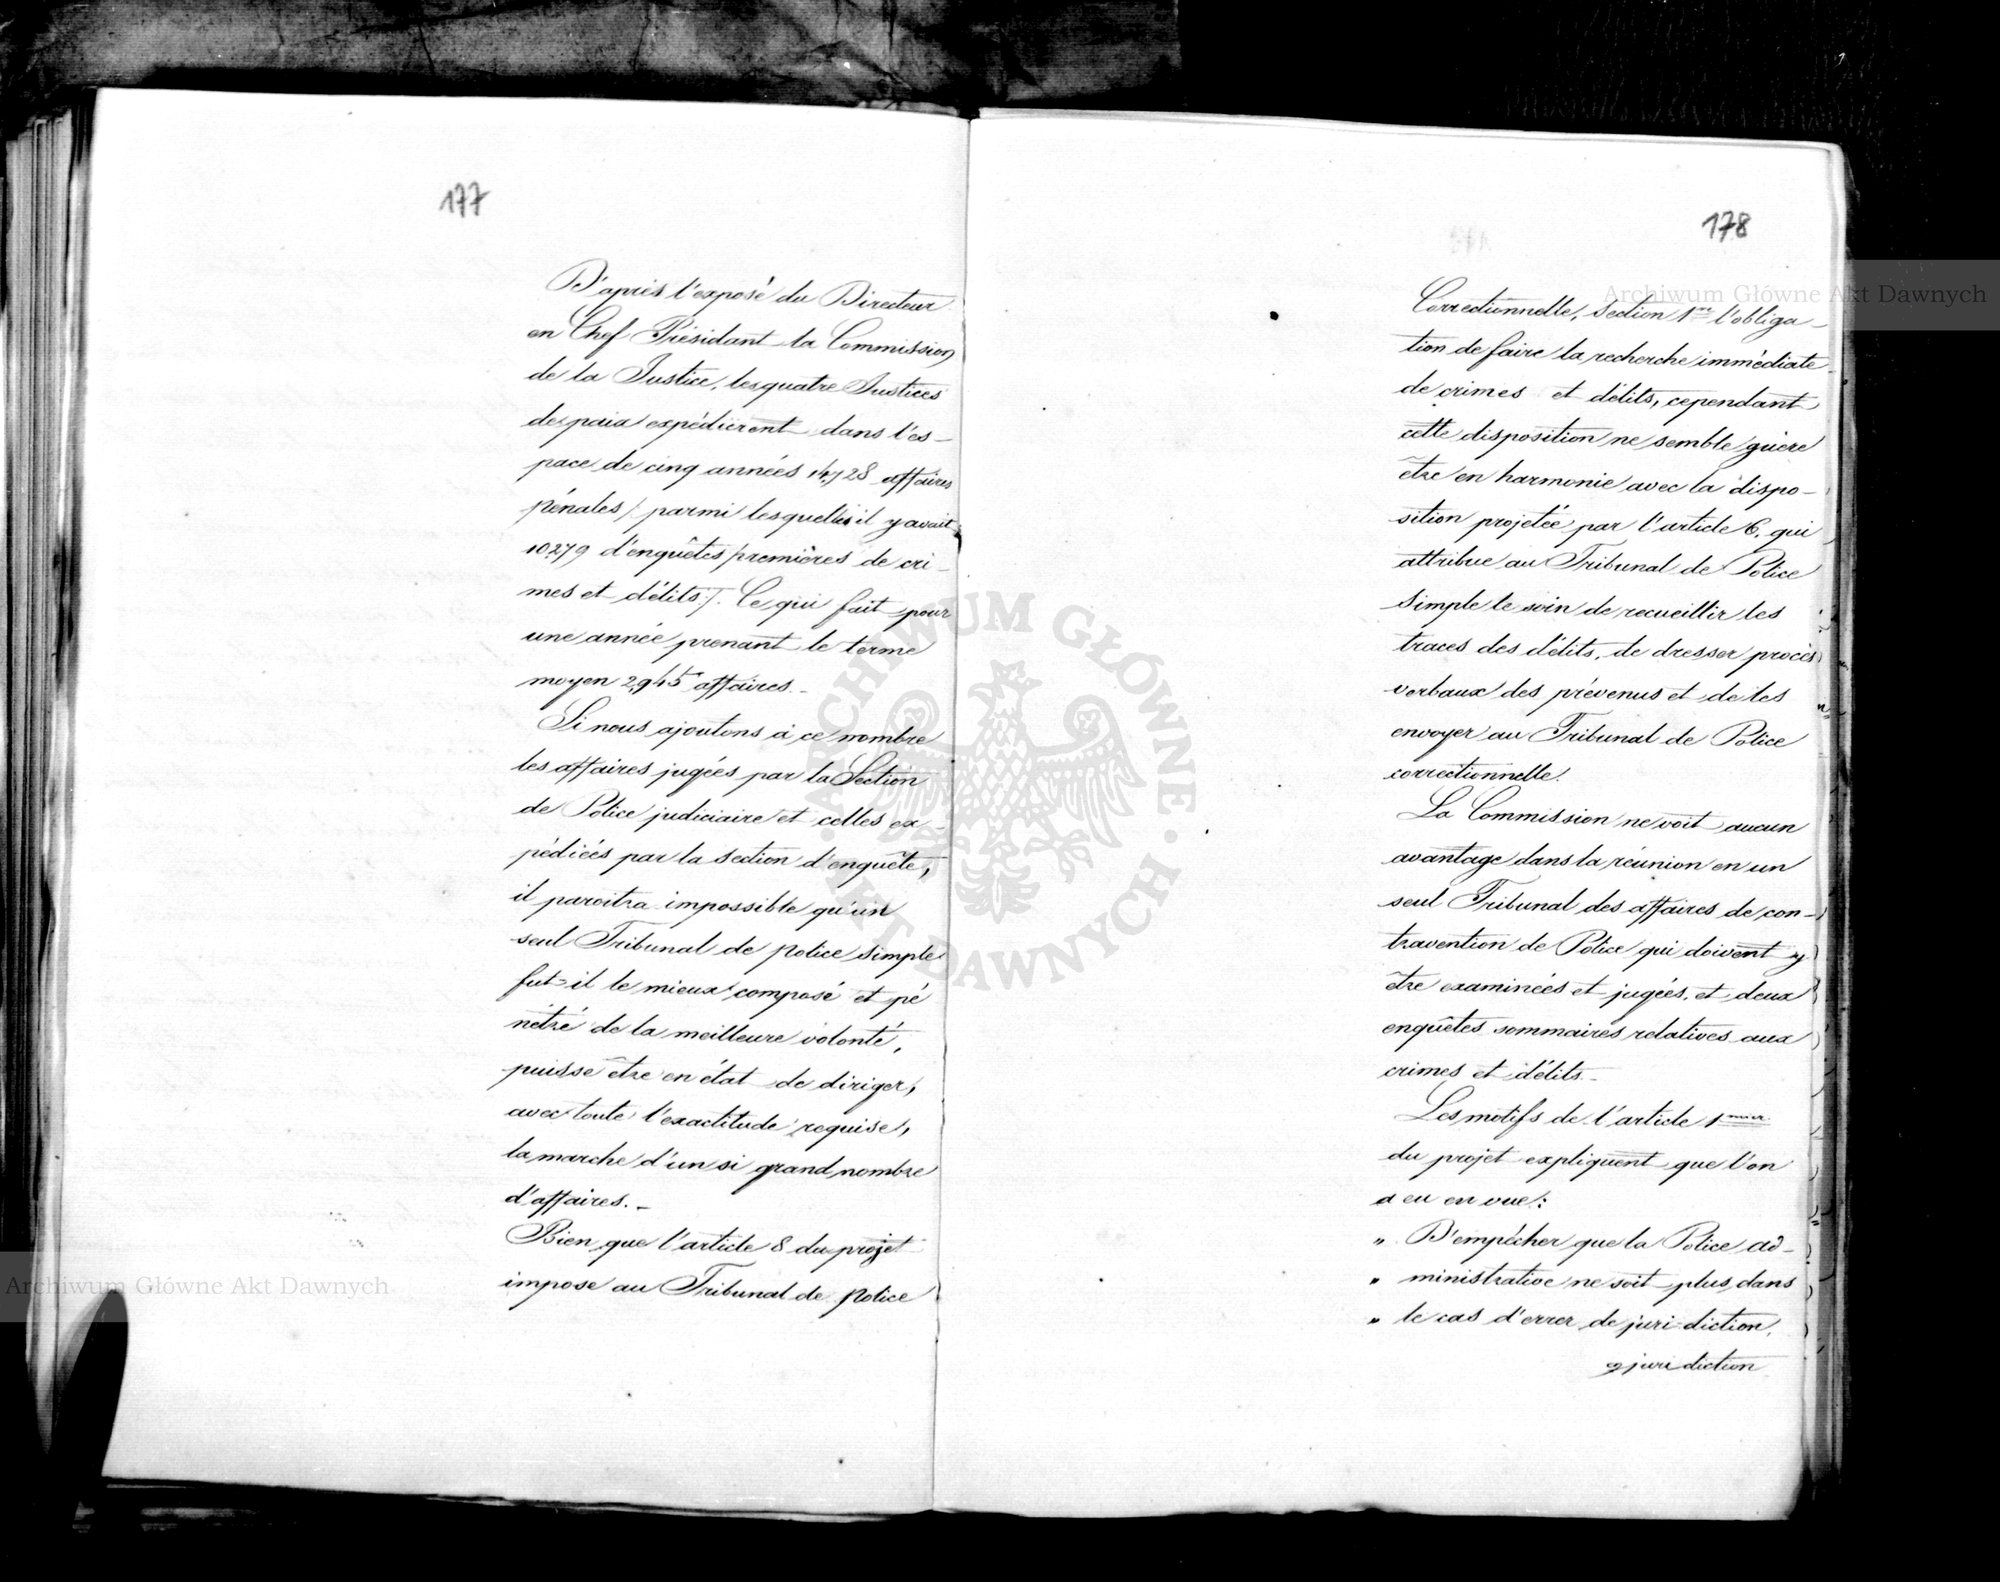 177
D'après l'exposé du Directeur
en Chef Présidant la Commission
de la Justice, les quatre Justices
de paix expédièrent dans l'es-
pace de cinq années 14,728 affaires
pénales /: parmi lesquelles il y avait
10,279 d'enquêtes premières de cri-
mes et délits :/. Ce qui fait pour
une année prenant le terme
moyen 2,945 affaires.-
Si nous ajoutons à ce nombre
les affaires jugées par la Section
de Police judiciaire et celles ex-
pédiées par la section d'enquête,
il paroitra impossible qu'un
seul Tribunal de police simple
fut-il le mieux composé et pé
nétré de la meilleure volonté,
puisse être en état de diriger,
avec toute l'exactitude requise,
la marche d'un si grand nombre
d'affaires.-
Bien que l'article 8 du projet
impose au Tribunal de police
178
Correctionnelle, Section 1re l'obliga-
tion de faire la recherche immédiate
de crimes et délits, cependant
cette disposition ne semble guère
être en harmonie avec la dispo-
sition projetée par l'article 6, qui
attribue au Tribunal de Police
Simple le soin de recueillir les
traces des délits, de dresser procès
verbaux des prévenus et de les
envoyer au Tribunal de Police
correctionnelle.
La Commission ne voit aucun
avantage dans la réunion en un
seul Tribunal des affaires de con-
travention de Police qui doivent y
être examinées et jugées, et deux
enquêtes sommaires relatives aux
crimes et délits.-
Les motifs de l'article 1mier
du projet expliquent que l'on
a eu en vue:
" D'empêcher que la Police ad-
" ministrative ne soit plus dans
" le cas d'errer de juri-diction,
juridiction
Archiwum Główne Akt Dawnych
Archiwum Główne Akt Dawnych
ARCHIWUM GŁÓWNE · AKT DAWNYCH ·